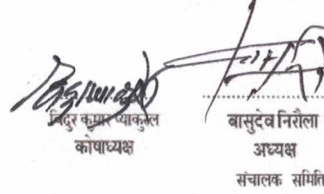 बिदुर कुमार प्याकुरेल
कोषाध्यक्ष
बासुदेव निरौला
अध्यक्ष
संचालक समिति